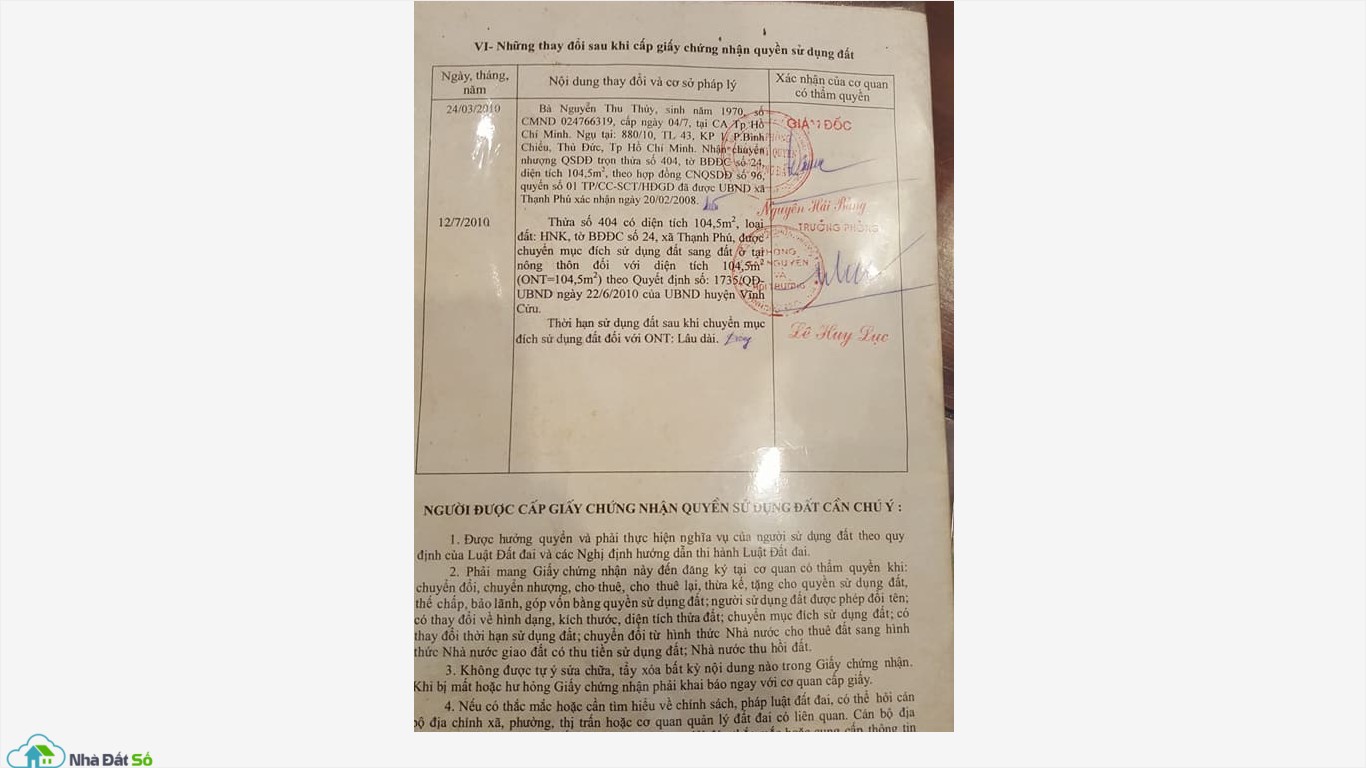 VI- Những thay đổi sau khi cấp giấy chứng nhận quyền sử dụng đất
Ngày, tháng, năm
Nội dung thay đổi và cơ sở pháp lý
Xác nhận của cơ quan có thẩm quyền
24/03/2010
Bà Nguyễn Thu Thủy, sinh năm 1970, số
CMND 024766319, cấp ngày 04/7, tại CA Tp Hồ
Chí Minh. Ngụ tại: 880/10, TL 43, KP 1, P.Bình
Chiểu, Thủ Đức, Tp Hồ Chí Minh. Nhận chuyển
nhượng QSDĐ trọn thửa số 404, tờ BĐĐC số 24,
diện tích 104,5m², theo hợp đồng CNQSDĐ số 96,
quyển số 01 TP/CC-SCT/HĐGD đã được UBND xã
Thạnh Phú xác nhận ngày 20/02/2008.
GIÁM ĐỐC
Nguyễn Hải Bằng
12/7/2010
Thửa số 404 có diện tích 104,5m², loại
đất: HNK, tờ BĐĐC số 24, xã Thạnh Phú, được
chuyển mục đích sử dụng đất sang đất ở tại
nông thôn đối với diện tích 104,5m²
(ONT=104,5m²) theo Quyết định số: 1735/QĐ-
UBND ngày 22/6/2010 của UBND huyện Vĩnh
Cửu.
Thời hạn sử dụng đất sau khi chuyển mục
đích sử dụng đất đối với ONT: Lâu dài.
TRƯỞNG PHÒNG
PHÒNG
TÀI NGUYÊN
VÀ
MÔI TRƯỜNG
Lê Huy Dục
NGƯỜI ĐƯỢC CẤP GIẤY CHỨNG NHẬN QUYỀN SỬ DỤNG ĐẤT CẦN CHÚ Ý :
1. Được hưởng quyền và phải thực hiện nghĩa vụ của người sử dụng đất theo quy
định của Luật Đất đai và các Nghị định hướng dẫn thi hành Luật Đất đai.
2. Phải mang Giấy chứng nhận này đến đăng ký tại cơ quan có thẩm quyền khi:
chuyển đổi, chuyển nhượng, cho thuê, cho thuê lại, thừa kế, tặng cho quyền sử dụng đất,
thế chấp, bảo lãnh, góp vốn bằng quyền sử dụng đất; người sử dụng đất được phép đổi tên;
có thay đổi về hình dạng, kích thước, diện tích thửa đất; chuyển mục đích sử dụng đất; có
thay đổi thời hạn sử dụng đất; chuyển đổi từ hình thức Nhà nước cho thuê đất sang hình
thức Nhà nước giao đất có thu tiền sử dụng đất; Nhà nước thu hồi đất.
3. Không được tự ý sửa chữa, tẩy xóa bất kỳ nội dung nào trong Giấy chứng nhận.
Khi bị mất hoặc hư hỏng Giấy chứng nhận phải khai báo ngay với cơ quan cấp giấy.
4. Nếu có thắc mắc hoặc cần tìm hiểu về chính sách, pháp luật đất đai, có thể hỏi cán
bộ địa chính xã, phường, thị trấn hoặc cơ quan quản lý đất đai có liên quan. Cán bộ địa
Nhà Đất Số